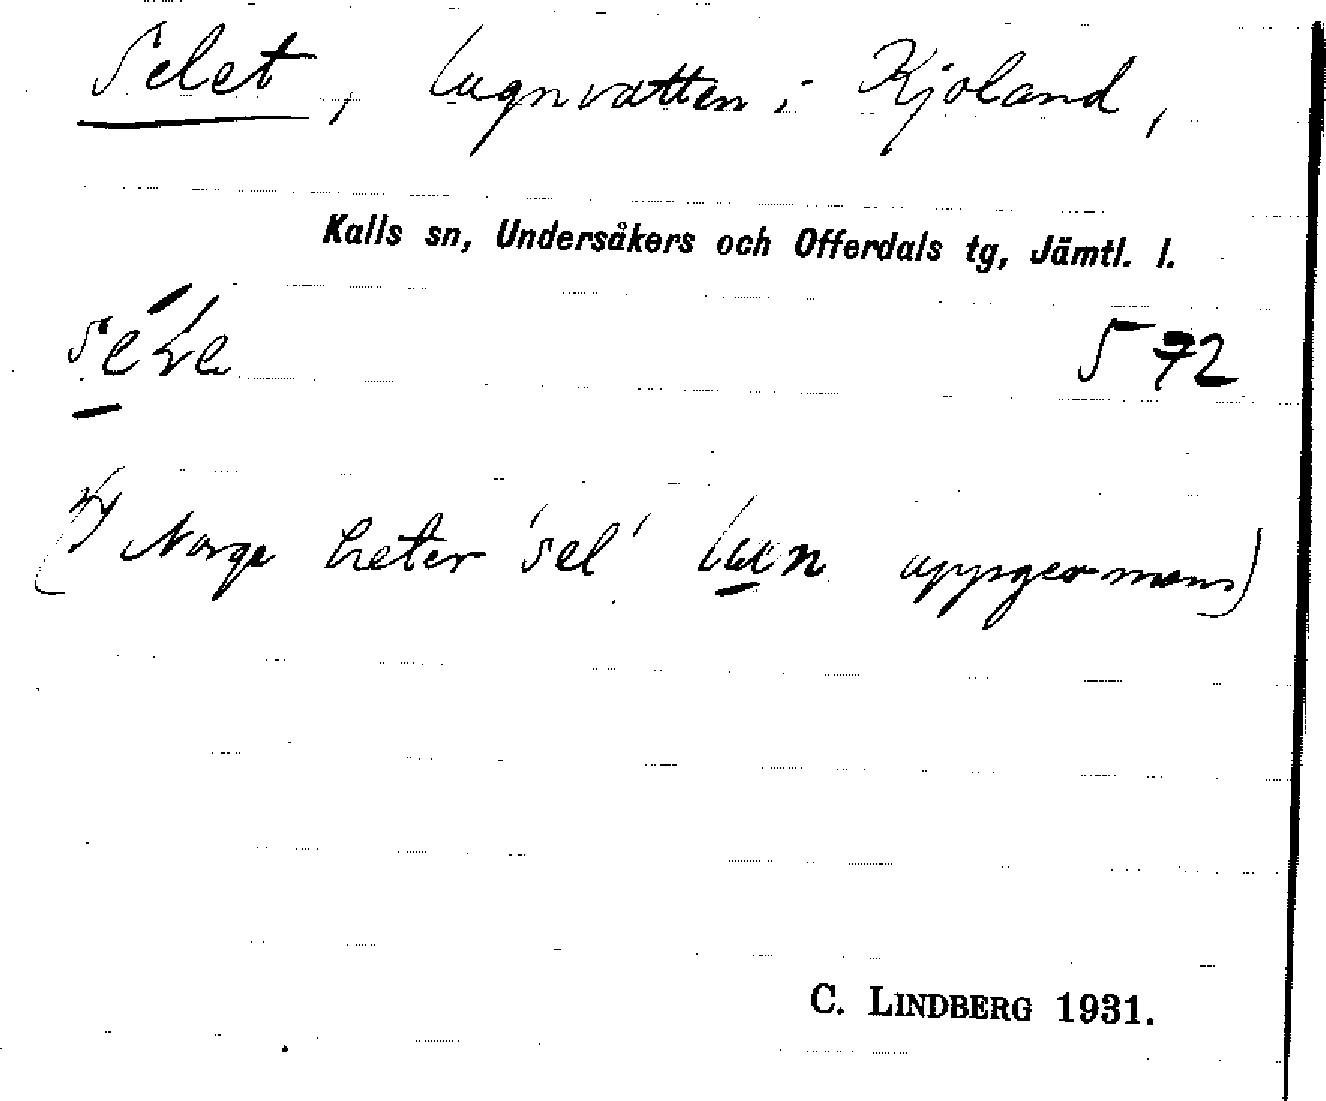 Selet, lugnvatten i Kjoland,
Kalls sn, Undersåkers och Offerdals tg, Jämtl. l.
572
(I Norge heter 'sel' lun uppger mem)
C. LINDBERG 1931.